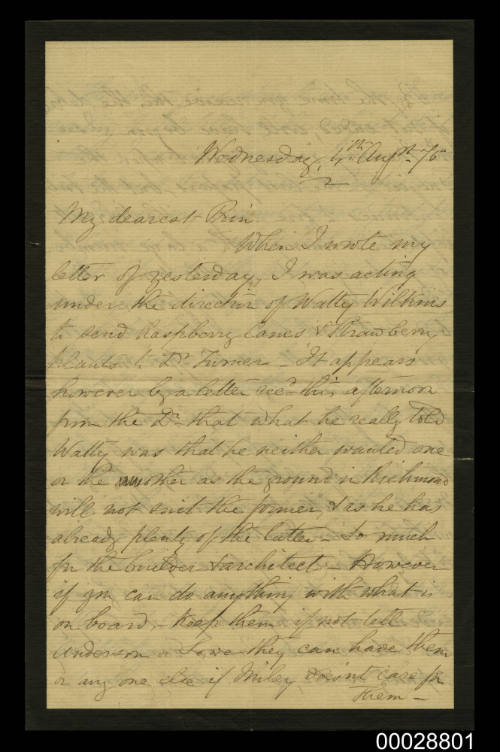 Wednesday, 4th Augst 76
My dearest Prin
When I wrote my
letter of yesterday, I was acting
under the direction of Watty Wilkins
to send Raspberry Canes & Strawberry
plants to Dr Turner - It appears
however by a letter recd this afternoon
from the Dr that what he really told
Watty was that he neither wanted one
or the other as the ground in Richmond
will not suit the former & as he has
already plenty of the latter - So much
for the & architect - However
if you can do anything with what is
on board - Keep them if not tell
Anderson & Lowe they can have them
or any one else if Miley doesnt care for
them -
00028801